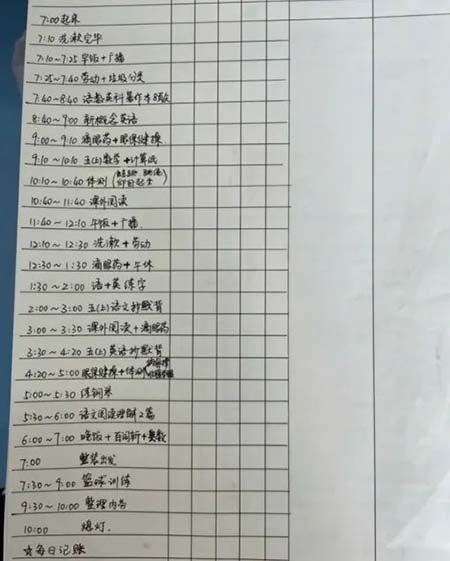 7:00 起床
7:10 洗漱完毕
7:10~7:25 早饭+广播
7:25~7:40 劳动+垃圾分类
7:40~8:40 语数英科暑作本8页
8:40~9:00 新概念英语
9:00~9:10 滴眼药+眼保健操
9:10~10:10 五(上)数学+计算纸
10:10~10:40 体测(跳绳 仰卧起坐
10:40~11:40 课外阅读
11:40~12:10 午饭+广播
12:10~12:30 洗漱+劳动
12:30~1:30 滴眼药+午休
1:30~2:00 语+英练字
2:00~3:00 五(上)语文抄默背
3:00~3:30 课外阅读+滴眼药
3:30~4:20 五(上)英语抄默背
4:20~5:00 眼保健操+体测
5:00~5:30 练钢琴
5:30~6:00 语文阅读理解2篇
6:00~7:00 晚饭+百词斩+奥数
7:00 整装出发
7:30~9:00 篮球训练
9:30~10:00 整理内务
10:00 熄灯.
☆每日记账